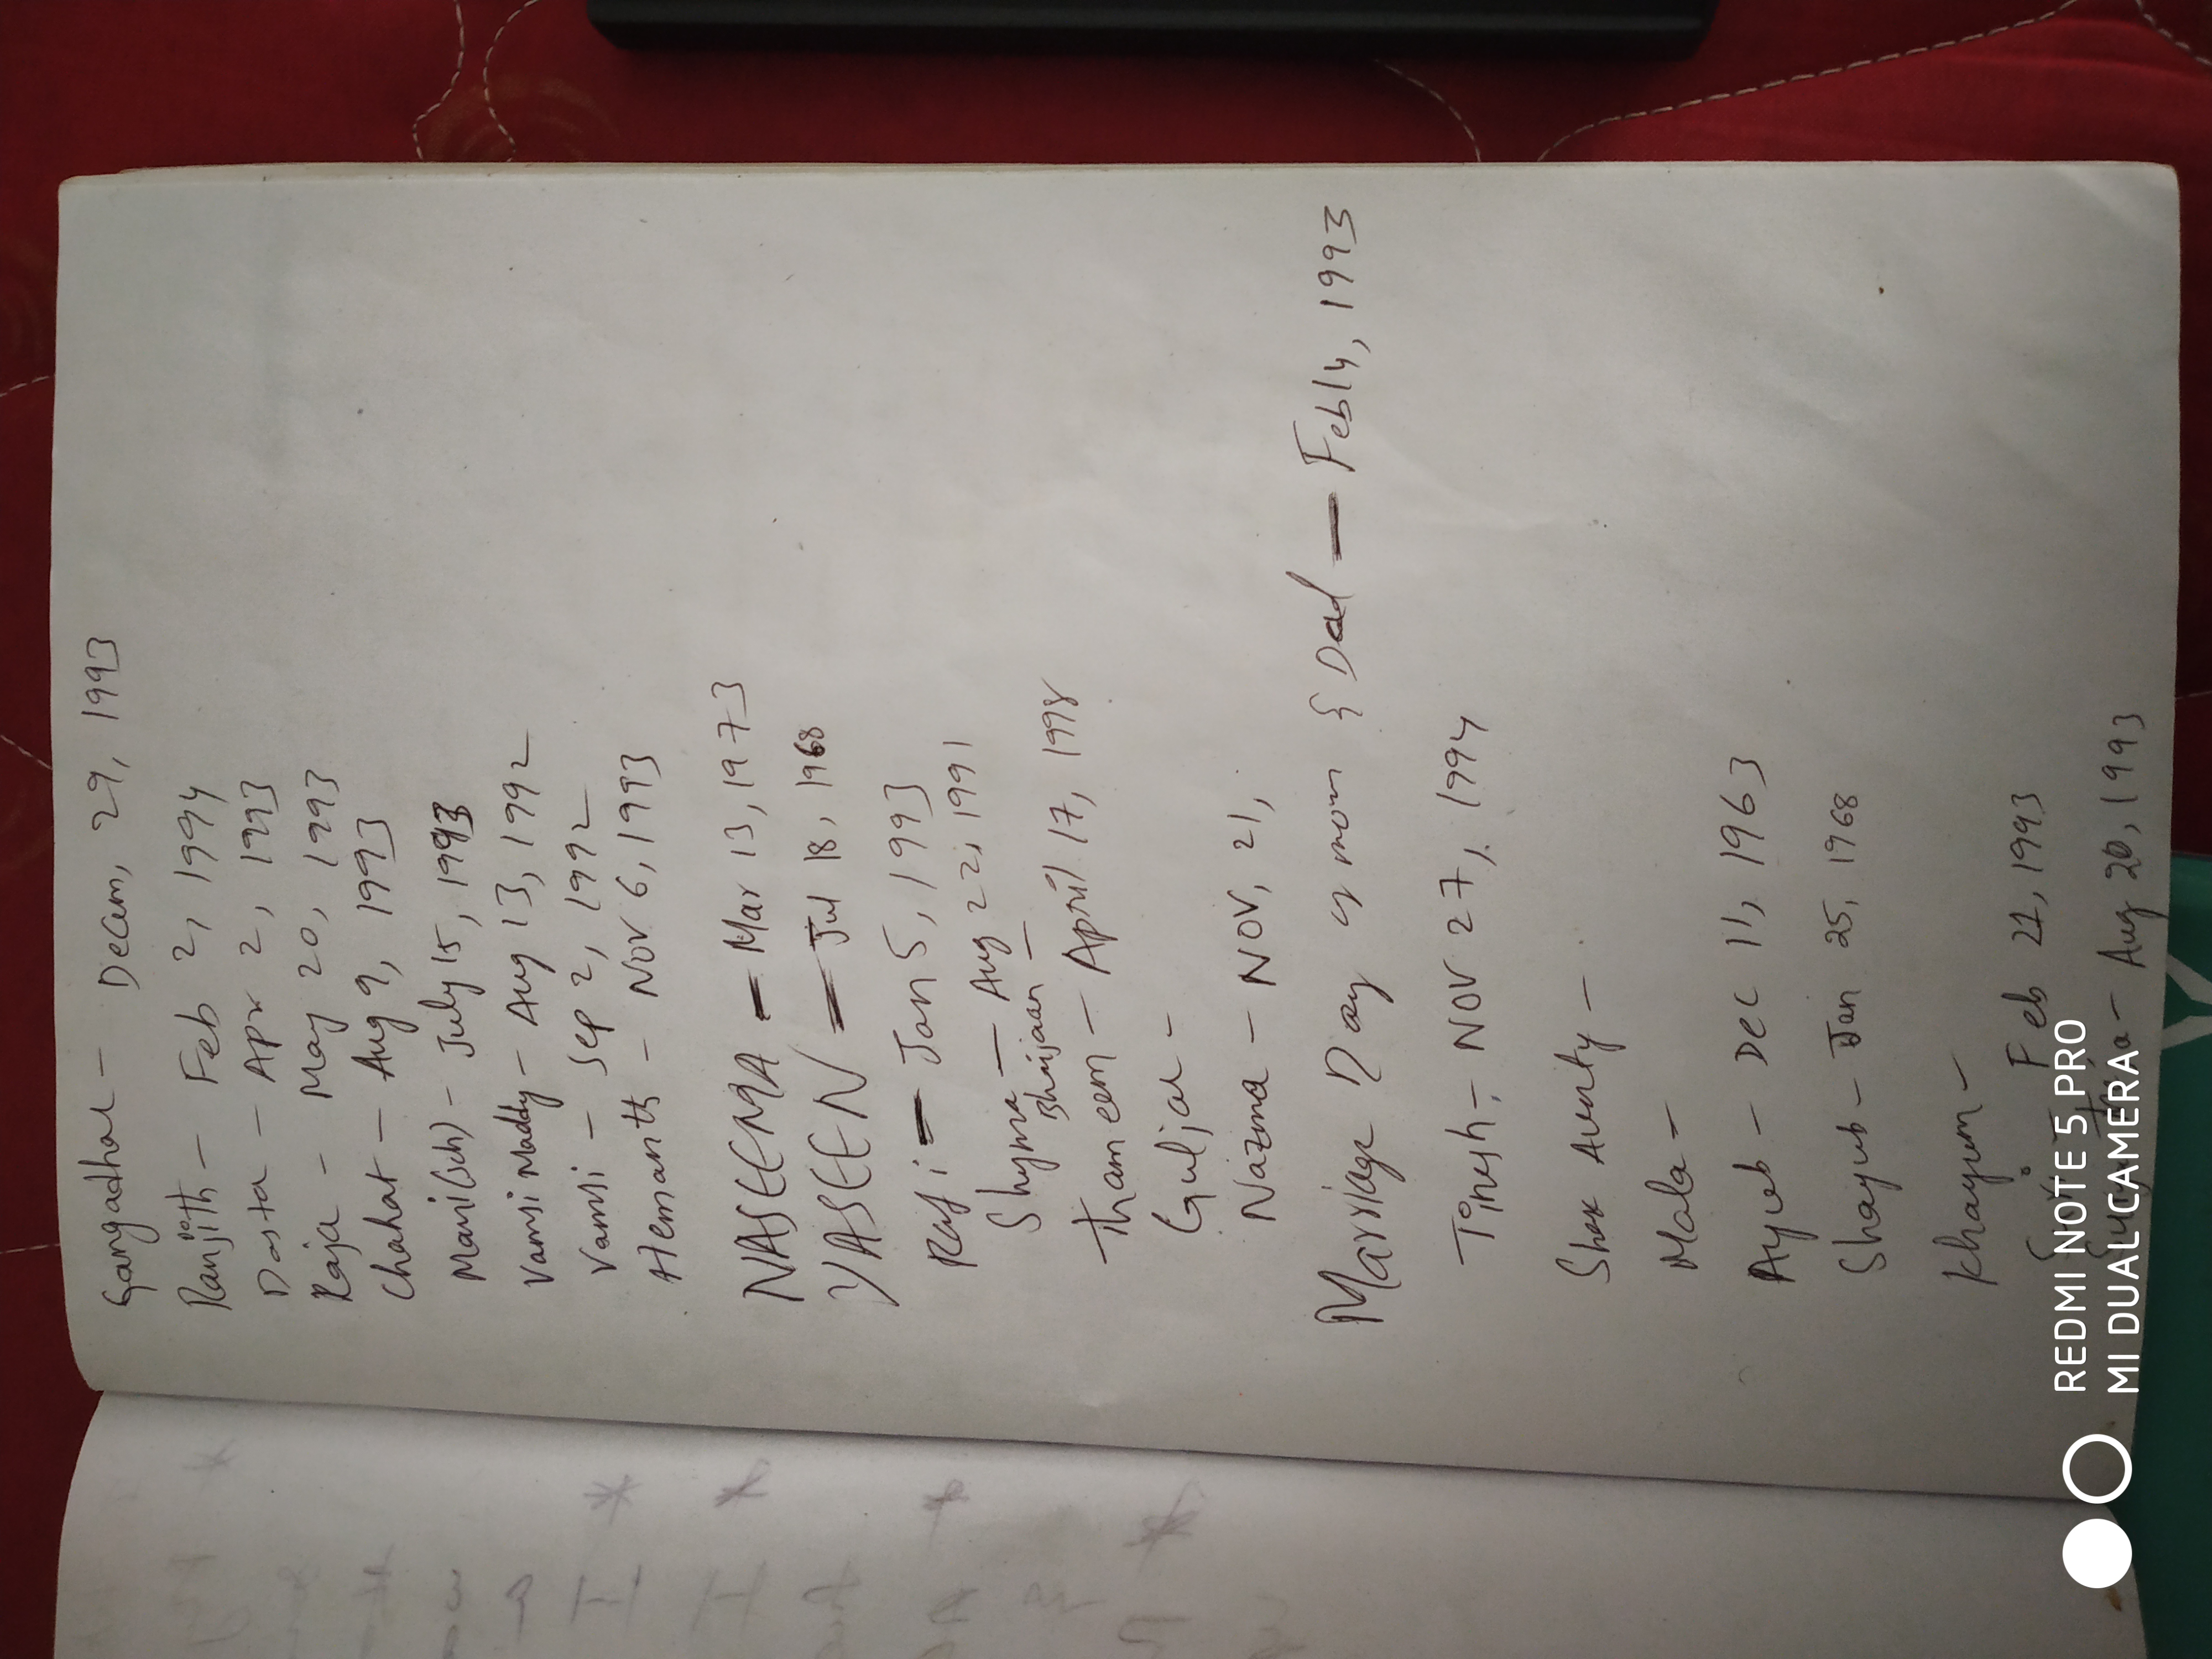 Gangadhar - Decem, 29, 1993
Ranjith - Feb 2, 1994
Dasta - Apr 2, 1993
Raja - May 20, 1993
Chahat - Aug 9, 1993
Mani(sch) - July 15, 1993
Vamsi Maddy - Aug 13, 1992
Vamsi - Sep 2, 1992
Hemanth - Nov 6, 1993
NASEEMA - Mar 13, 1973
YASEEN - Jul 18, 1968
Rafi - Jan 5, 1993
Shyma - Aug 22, 1991
Bhaijaan -
Thameem - April 17, 1998
Guljar -
Nazma - NOV, 21,
Marriage Day of mom & Dad - Feb 14, 1993
Tinesh - NOV 27, 1994
-
Mala -
Ayub - Dec 11, 1963
Shayub - Jan 25, 1968
Khayum -
Suri - Feb 21, 1993
- Aug 20, 1993
REDMI NOTE 5 PRO
MI DUAL CAMERA